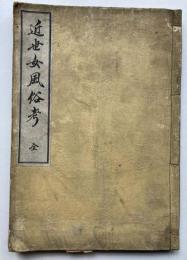 近世女風俗考 全